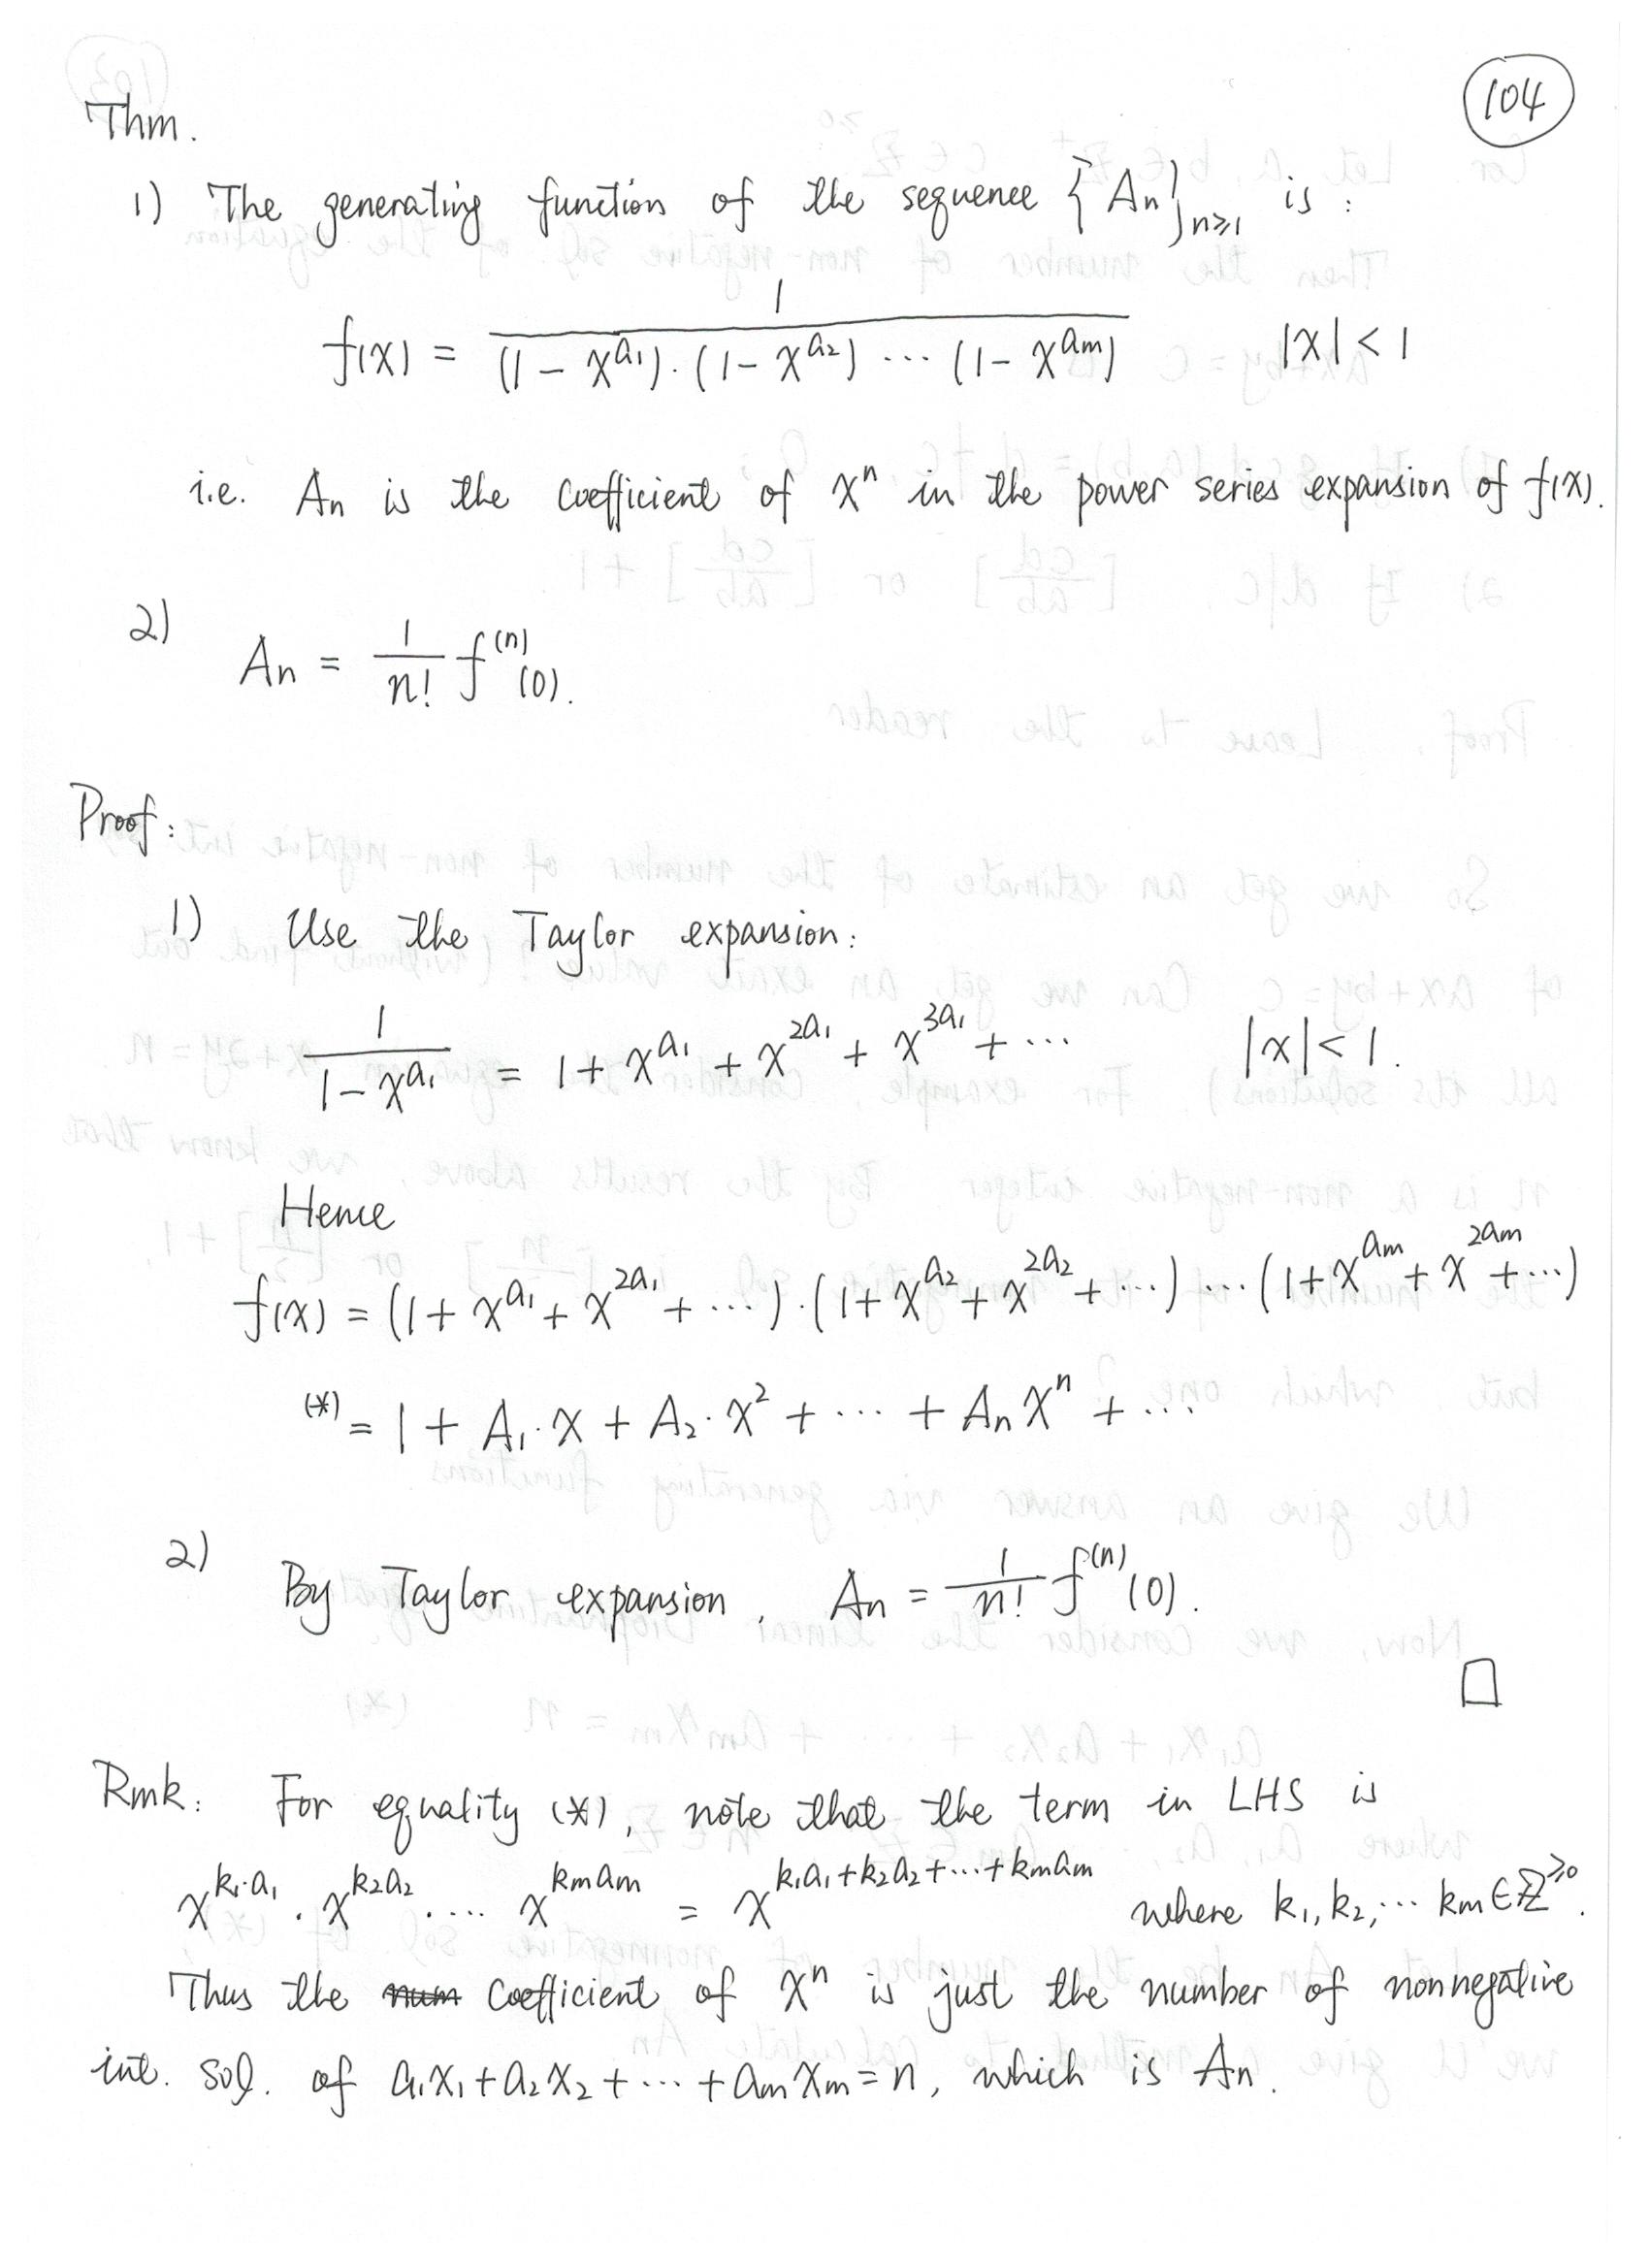 104
Thm.
1) The generating function of the sequence {An}n⩾1 is :
f(x) = 1 / (1 - x^a1)·(1 - x^a2) ··· (1 - x^am)    |x| < 1
i.e. An is the coefficient of x^n in the power series expansion of f(x).
2) An = 1/n! f^(n)(0).
Proof:
1) Use the Taylor expansion:
1/(1 - x^a1) = 1 + x^a1 + x^2a1 + x^3a1 + ···    |x| < 1.
Hence
f(x) = (1 + x^a1 + x^2a1 + ···)·(1 + x^a2 + x^2a2 + ···) ··· (1 + x^am + x^2am + ···)
(*) = 1 + A1·x + A2·x^2 + ··· + An x^n + ···
2) By Taylor expansion, An = 1/n! f^(n)(0).
□
Rmk: For equality (*), note that the term in LHS is
x^k1·a1 · x^k2a2 · ···· x^kmam = x^k1a1+k2a2+···+kmam    where k1, k2, ··· km ∈ ℤ^⩾0.
Thus the num coefficient of x^n is just the number of nonnegative
int. sol. of a1x1 + a2x2 + ··· + amxm = n, which is An.